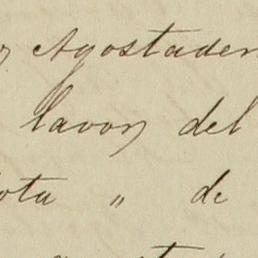 y Agostader
lavor del
ota " de